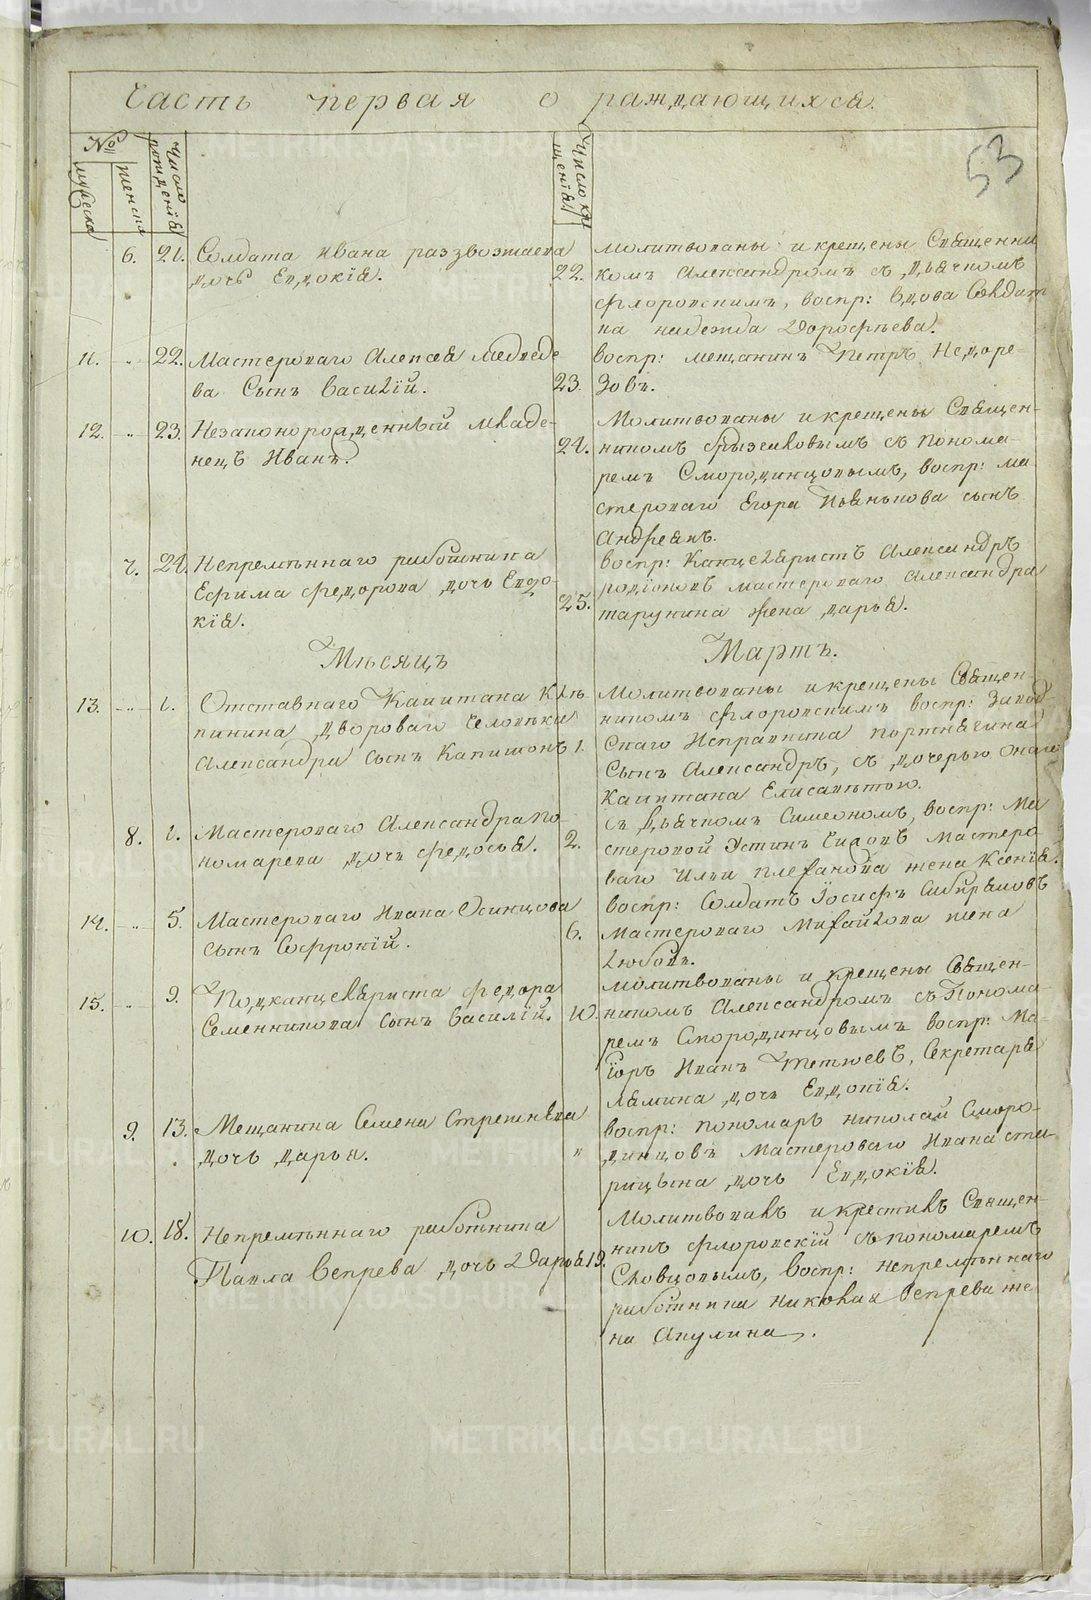 Часть первая о раждающихся.
53
№
мужеска
женска
Число рождения
Число крещения
6. 21. Солдата Ивана
дочь Евдокія.
22.
молитвованы и крещены Священни
комъ Александромъ съ дьячкомъ
Флоровскимъ, воспр: вдова Солдат
ка надежда Дорофѣева.
11. " 22. Мастероваго Алексея Медведе
ва Сынъ Василій.
23.
воспр: мещанинъ Петръ Недоре-
зовъ.
12. " 23. Незаконорожденный младе-
нецъ Иванъ.
24.
Молитвованы и крещены Священ-
никомъ съ понома-
ремъ Смородинцовымъ, воспр: ма
стероваго Егора Пьянкова сынъ
Андреянъ.
7. 24. Непремѣннаго работника
Ефима Федорова дочь Евдо-
кія.
25.
воспр: Канцеляристъ Александръ
родіоновъ мастероваго Александра
тарунина жена дарья.
Мѣсяцъ Мартъ.
13. " 1. Отставнаго Капитана Клю
пинина дворовагο человѣка
Александра сынъ Капитонъ
1.
Молитвованы и крещены Священ-
никомъ Флоровскимъ воспр: Завод-
скаго Исправника портнягина
Сынъ Александръ, съ дочерью онаго
Капитана Елисаветою.
8. 1. Мастероваго Александра по-
номарева дочь федосья.
2.
съ Дьячкомъ Симеономъ, воспр: Ма
стеровой Устинъ мастеро
ваго Ильи Плеханова жена Ксенія.
14. " 5. Мастероваго Ивана Осинцова
сынъ Софроній.
6.
воспр: Солдатъ Іосифъ Сибиряковъ
мастероваго Михайлова жена
Любовь.
15. " 9. Подканцеляриста федора
Семенникова сынъ Василій.
10.
Молитвованы и крещены Священ-
никомъ Александромъ съ Понома-
ремъ Смородинцовымъ воспр: Ма-
іоръ Иванъ Тетюевъ, Секретаря
лямина дочь Евдокія.
9. 13. Мещанина Семена Стрежнева
дочь дарья.
"
воспр: пономарь николай Сморо-
динцовъ Мастероваго Ивана ста-
рицына дочь Евдокія.
10. 18. Непремѣннаго работника
Павла Вепрева дочь Дарья
19.
Молитвовалъ и крестилъ Священ-
никъ Флоровскій съ пономаремъ
Словцовымъ, воспр: непремѣннаго
работника николая Вепрева же-
на Акулина.
METRIKI.GASO-URAL.RU